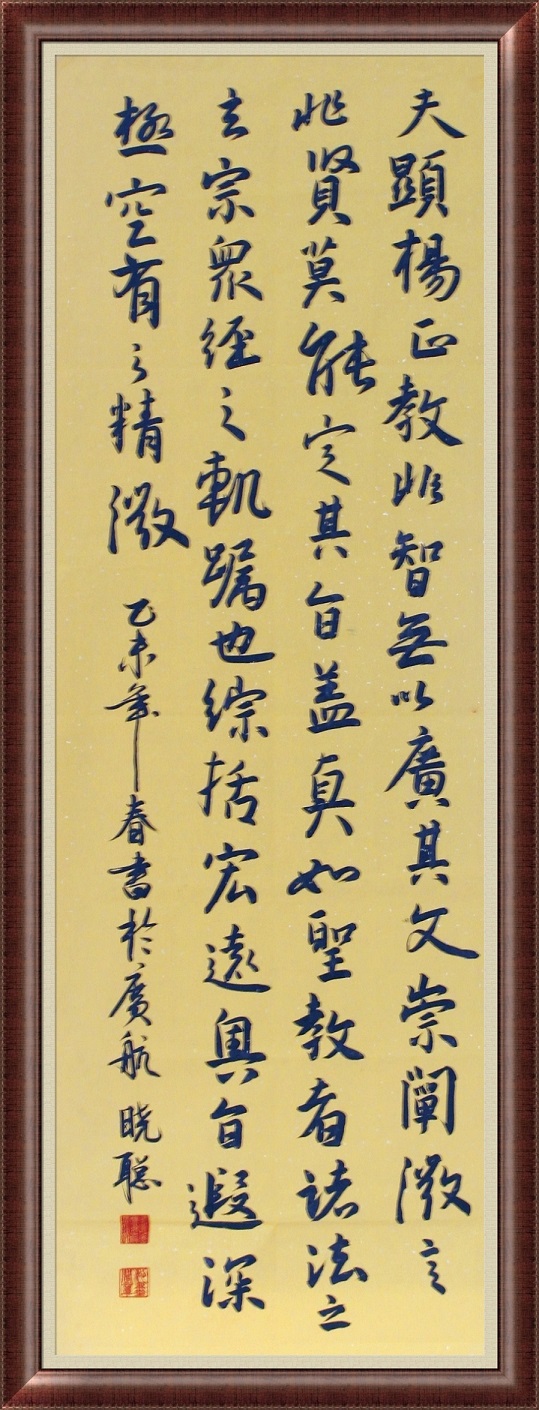 夫顯楊正教非智無以廣其文崇闡微言
非賢莫能定其旨蓋真如聖教者諸法之
玄宗眾經之軌躅也綜括宏遠奧旨遐深
極空有之精微
乙未年春書於廣航 曉聰